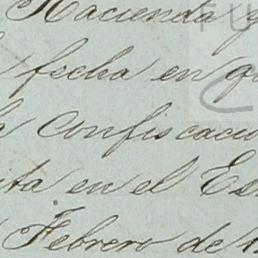 Hacienda y
fecha en q
confiscac
ita en el Es
Febrero de 1